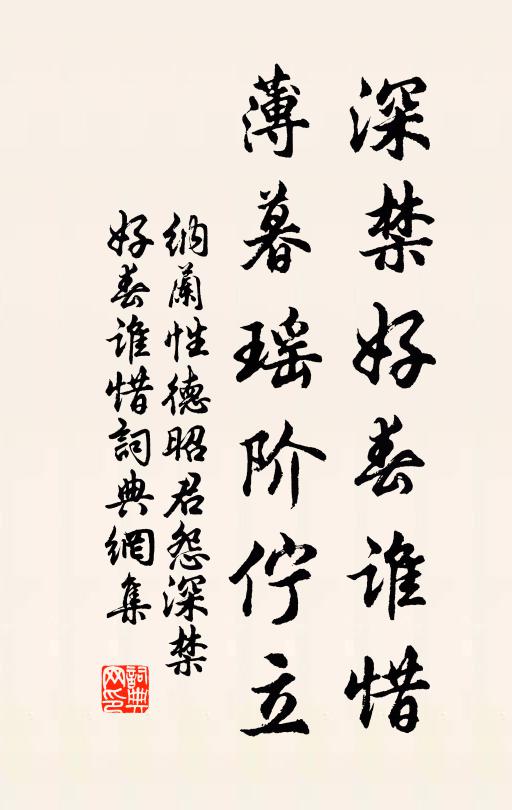 深禁好春谁惜
薄暮瑶阶伫立
纳兰性德昭君怨深禁
好春谁惜詞典網集
詞典
网印